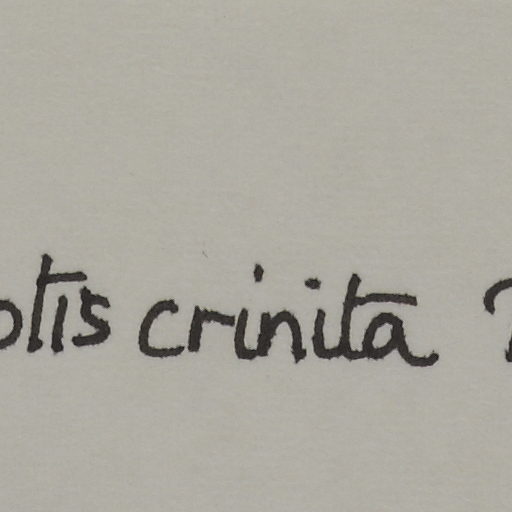 otis crinita